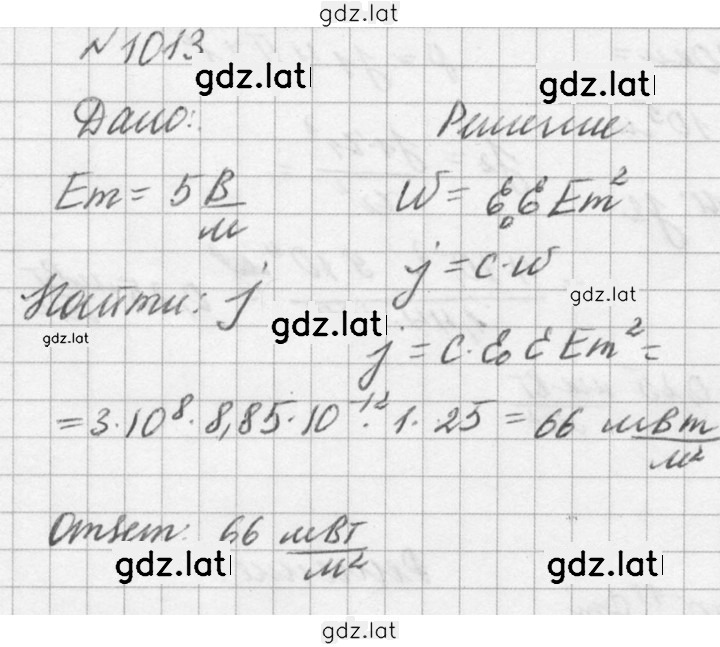 gdz.lat
№ 1013
gdz.lat gdz.lat
Дано: Решение
Em = 5 В/м W = ε₀ε Em²
j = c·w
gdz.lat
Найти: j
gdz.lat gdz.lat
j = c·ε₀ ε Em² =
= 3·10⁸·8,85·10⁻¹²·1·25 = 66 мВт/м²
Ответ: 66 мВт/м²
gdz.lat gdz.lat
gdz.lat